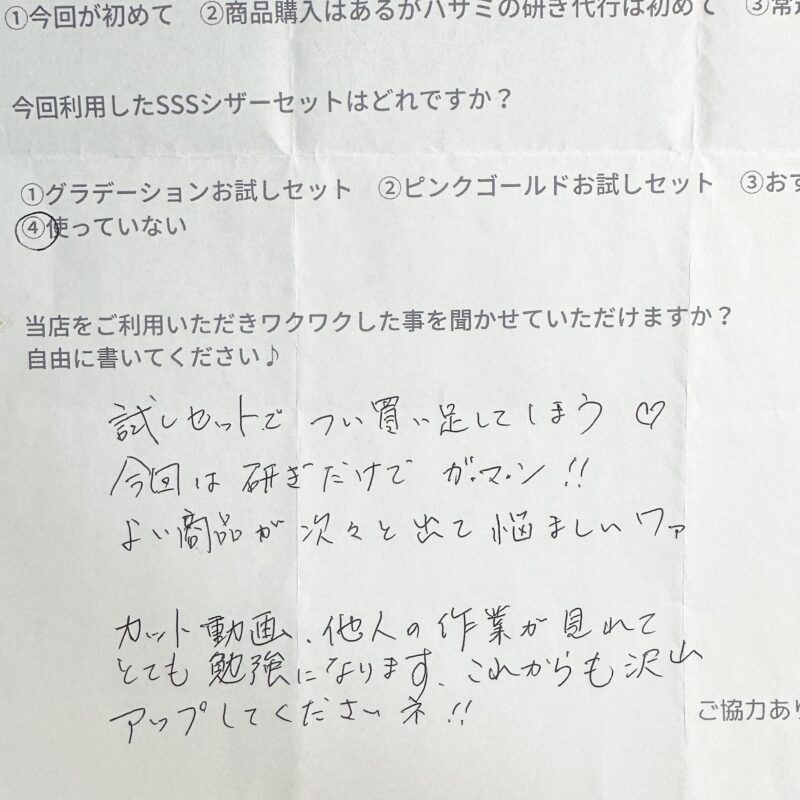 ①今回が初めて ②商品購入はあるがハサミの研ぎ代行は初めて ③常
今回利用したSSSシザーセットはどれですか？
①グラデーションお試しセット ②ピンクゴールドお試しセット ③おす
④使っていない
当店をご利用いただきワクワクした事を聞かせていただけますか？
自由に書いてください♪
試しセットで つい買い足してしまう ♡
今回は研ぎだけで ガ・マ・ン !!
よい商品が 次々と出て 悩ましいワァ
カット動画、他人の作業が見れて
とても勉強になります、これからも沢山
アップしてくださいネ !!
ご協力あり